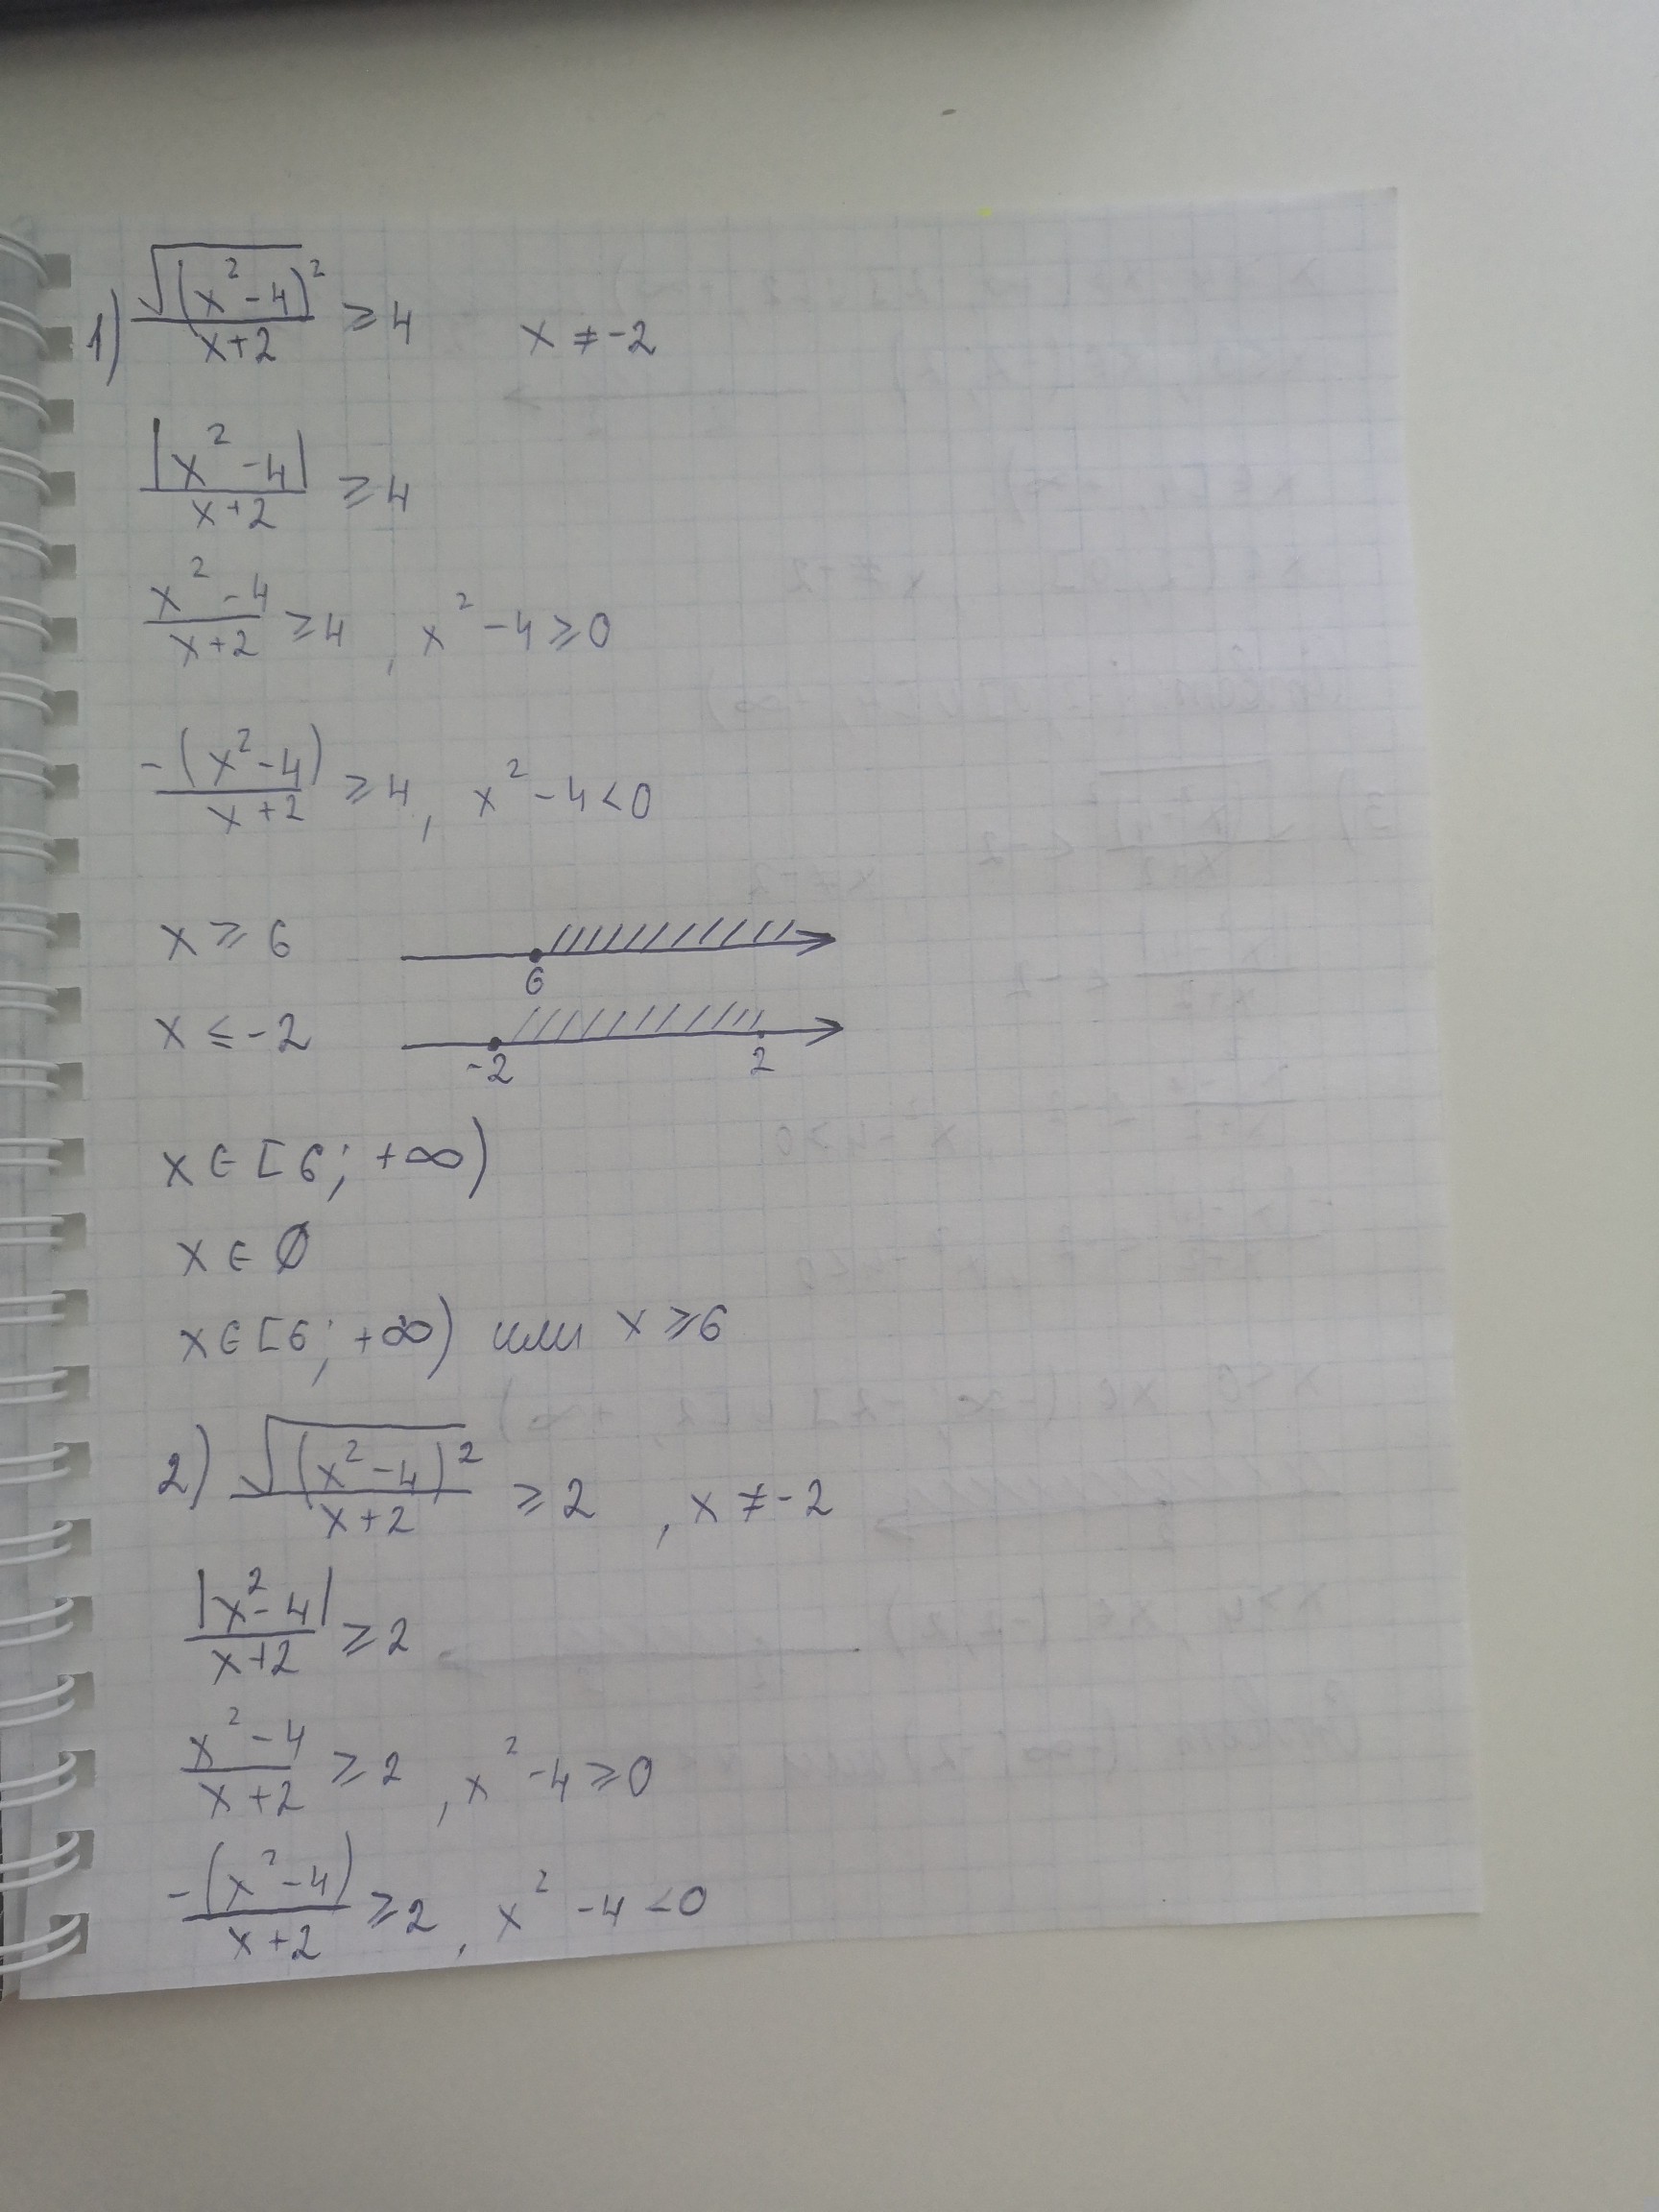 1) √(x² - 4)² / x+2 ≥ 4 x ≠ -2
|x² - 4| / x+2 ≥ 4
x² - 4 / x+2 ≥ 4 , x² - 4 ≥ 0
-(x² - 4) / x+2 ≥ 4 , x² - 4 < 0
x ≥ 6
6
x ≤ -2
-2 2
x ∈ [6; +∞)
x ∈ ∅
x ∈ [6; +∞) или x ≥ 6
2) √(x² - 4)² / x+2 ≥ 2 , x ≠ -2
|x² - 4| / x+2 ≥ 2
x² - 4 / x+2 ≥ 2 , x² - 4 ≥ 0
-(x² - 4) / x+2 ≥ 2 , x² - 4 < 0